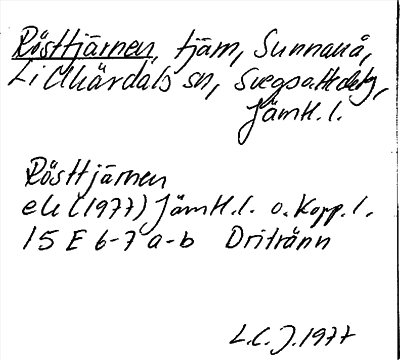 Rösttjärnen, tjärn, Sunnanå,
Lillhärdals sn, Svegs
Jämtl. l.
Rösttjärnen
ek (1977) Jämtl. l. o. Kopp. l.
15 E 6-7 a-b Dritränn
L.C.J. 1977